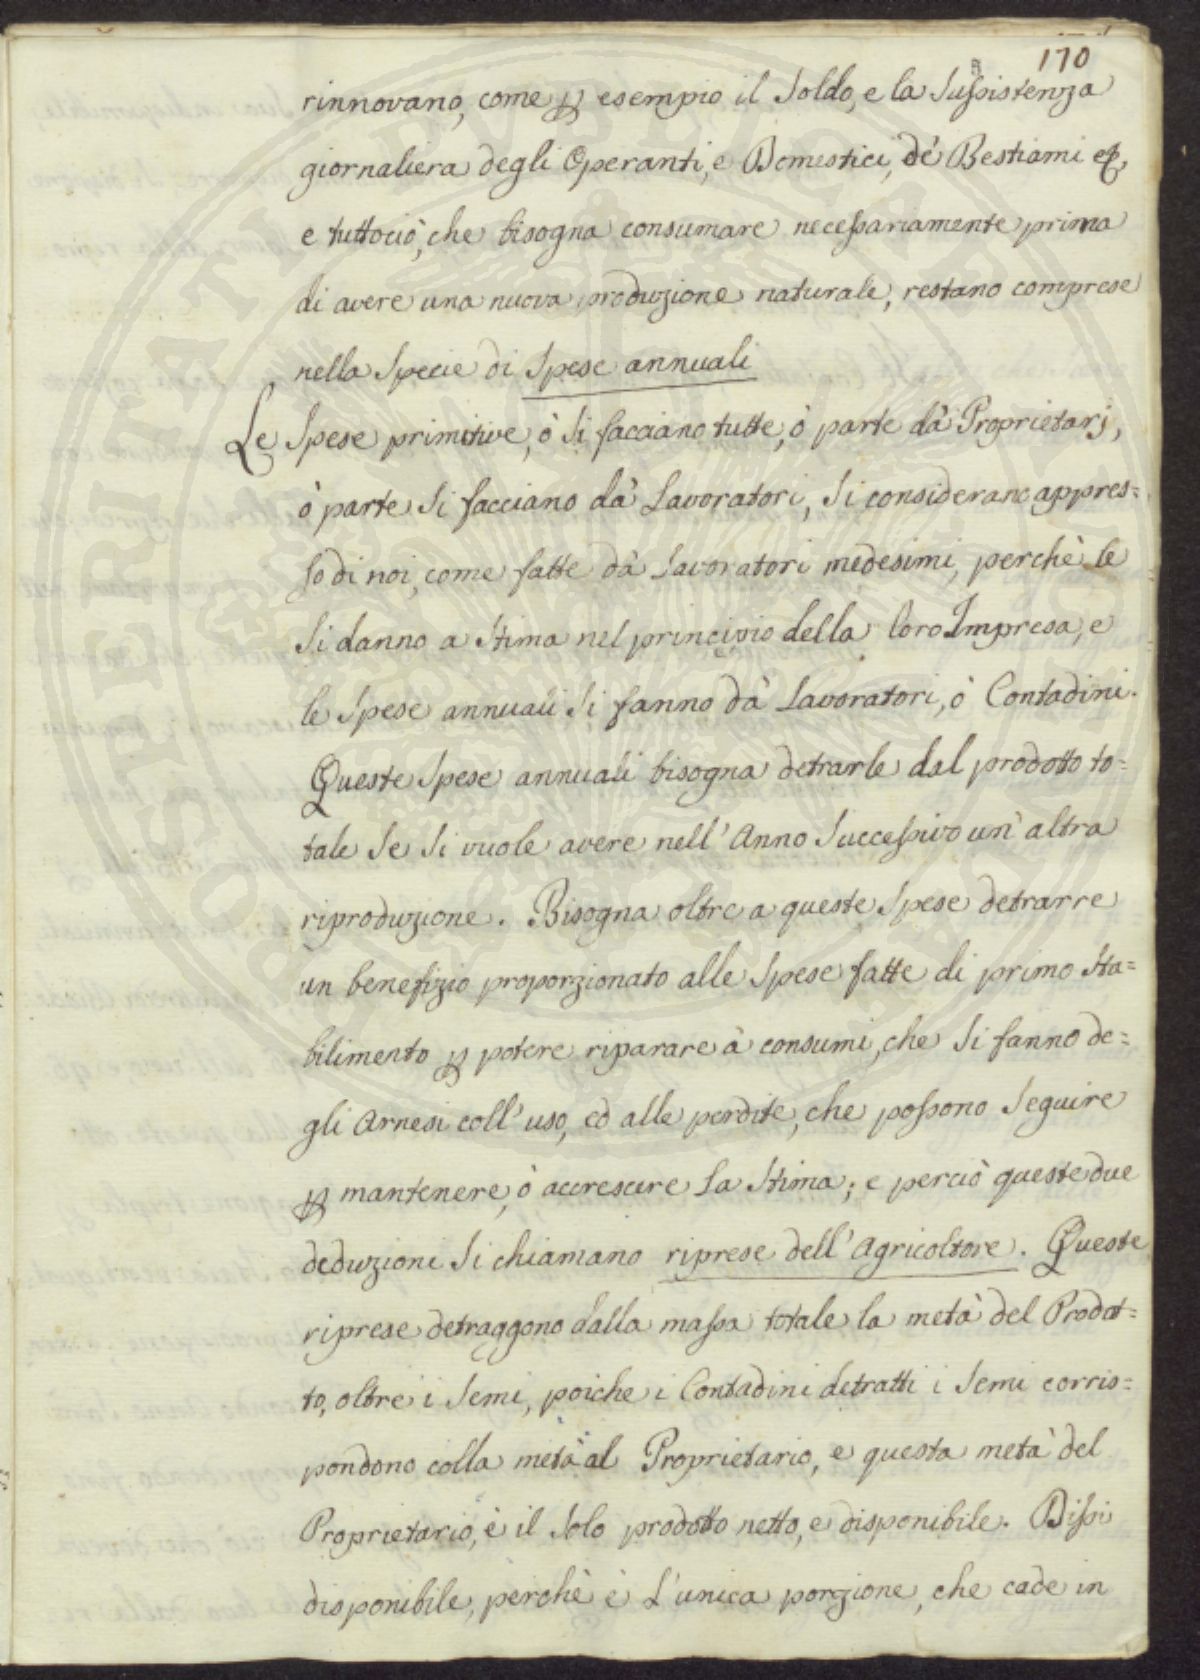 170
rinnovano, come ꝑ esempio il Soldo, e la Sussistenza
giornaliera degli Operanti, e Domestici, de' Bestiami &c,
e tuttociò, che bisogna consumare necessariamente prima
di avere una nuova produzione naturale, restano comprese
nella Specie di Spese annuali
Le Spese primitive, ò Si facciano tutte, ò parte dà Proprietarj,
ò parte Si facciano dà Lavoratori, Si considerano appres=
so di noi, come fatte dà Lavoratori medesimi, perchè le
Si danno a Stima nel principio della loro Impresa, e
le Spese annuali Si fanno dà Lavoratori, ò Contadini.
Queste Spese annuali bisogna detrarle dal prodotto to=
tale Se Si vuole avere nell'Anno Successivo un'altra
riproduzione. Bisogna oltre a queste Spese detrarre
un benefizio proporzionato alle Spese fatte di primo Sta=
bilimento ꝑ potere riparare à consumi, che Si fanno de=
gli Arnesi coll'uso, ed alle perdite, che possono Seguire
ꝑ mantenere, ò accrescere La Stima; e perciò queste due
deduzioni Si chiamano riprese dell'Agricoltore. Queste
riprese detraggono dalla massa totale la metà del Prodot=
to, oltre i Semi, poiche i Contadini detratti i Semi corris=
pondono colla metà al Proprietario, e questa metà del
Proprietario, è il Solo prodotto netto, e disponibile. Dissi
disponibile, perchè è L'unica porzione, che cade in
POSTERITATI PVBLICAE